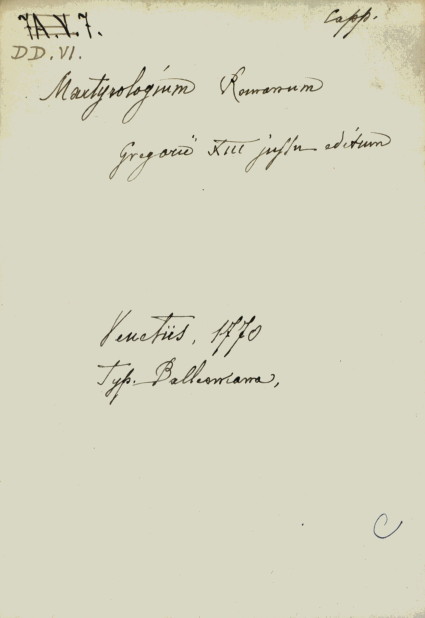 7A.V.7.
Capp.
DD.VI.
Martyrologium Romanum
Gregorii XIII jussu editum
Venetiis, 1770
Typ. Balleoniana,
C